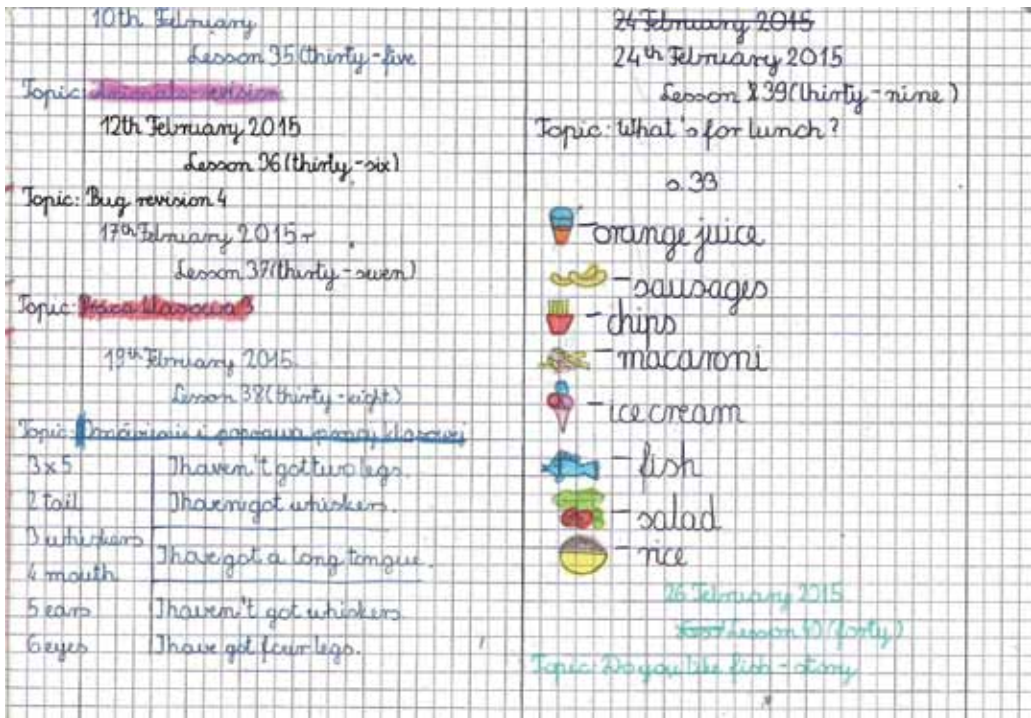 10th February
Lesson 35(thirty-five
Topic: Animals-revision
12th February 2015
Lesson 36(thirty-six)
Topic: Bug revision 4
17th February 2015r
Lesson 37(thirty-seven)
Topic: Praca klasowa 3
19th February 2015.
Lesson 38(thirty-eight)
Topic: Omówienie i poprawa pracy klasowej
3x5 I haven't got two legs.
2 tail I haven got whiskers.
3 whiskers
I have got a long tongue.
4 mouth
5 ears I haven't got whiskers.
6 eyes I have got four legs.
24 February 2015
24th February 2015
Lesson 39(thirty-nine)
Topic: What's for lunch?
s.33
-orange juice
-sausages
-chips
-macaroni
-ice cream
-fish
-salad
-rice
26 February 2015
Lesson 40(forty)
Topic: Do you like fish-story